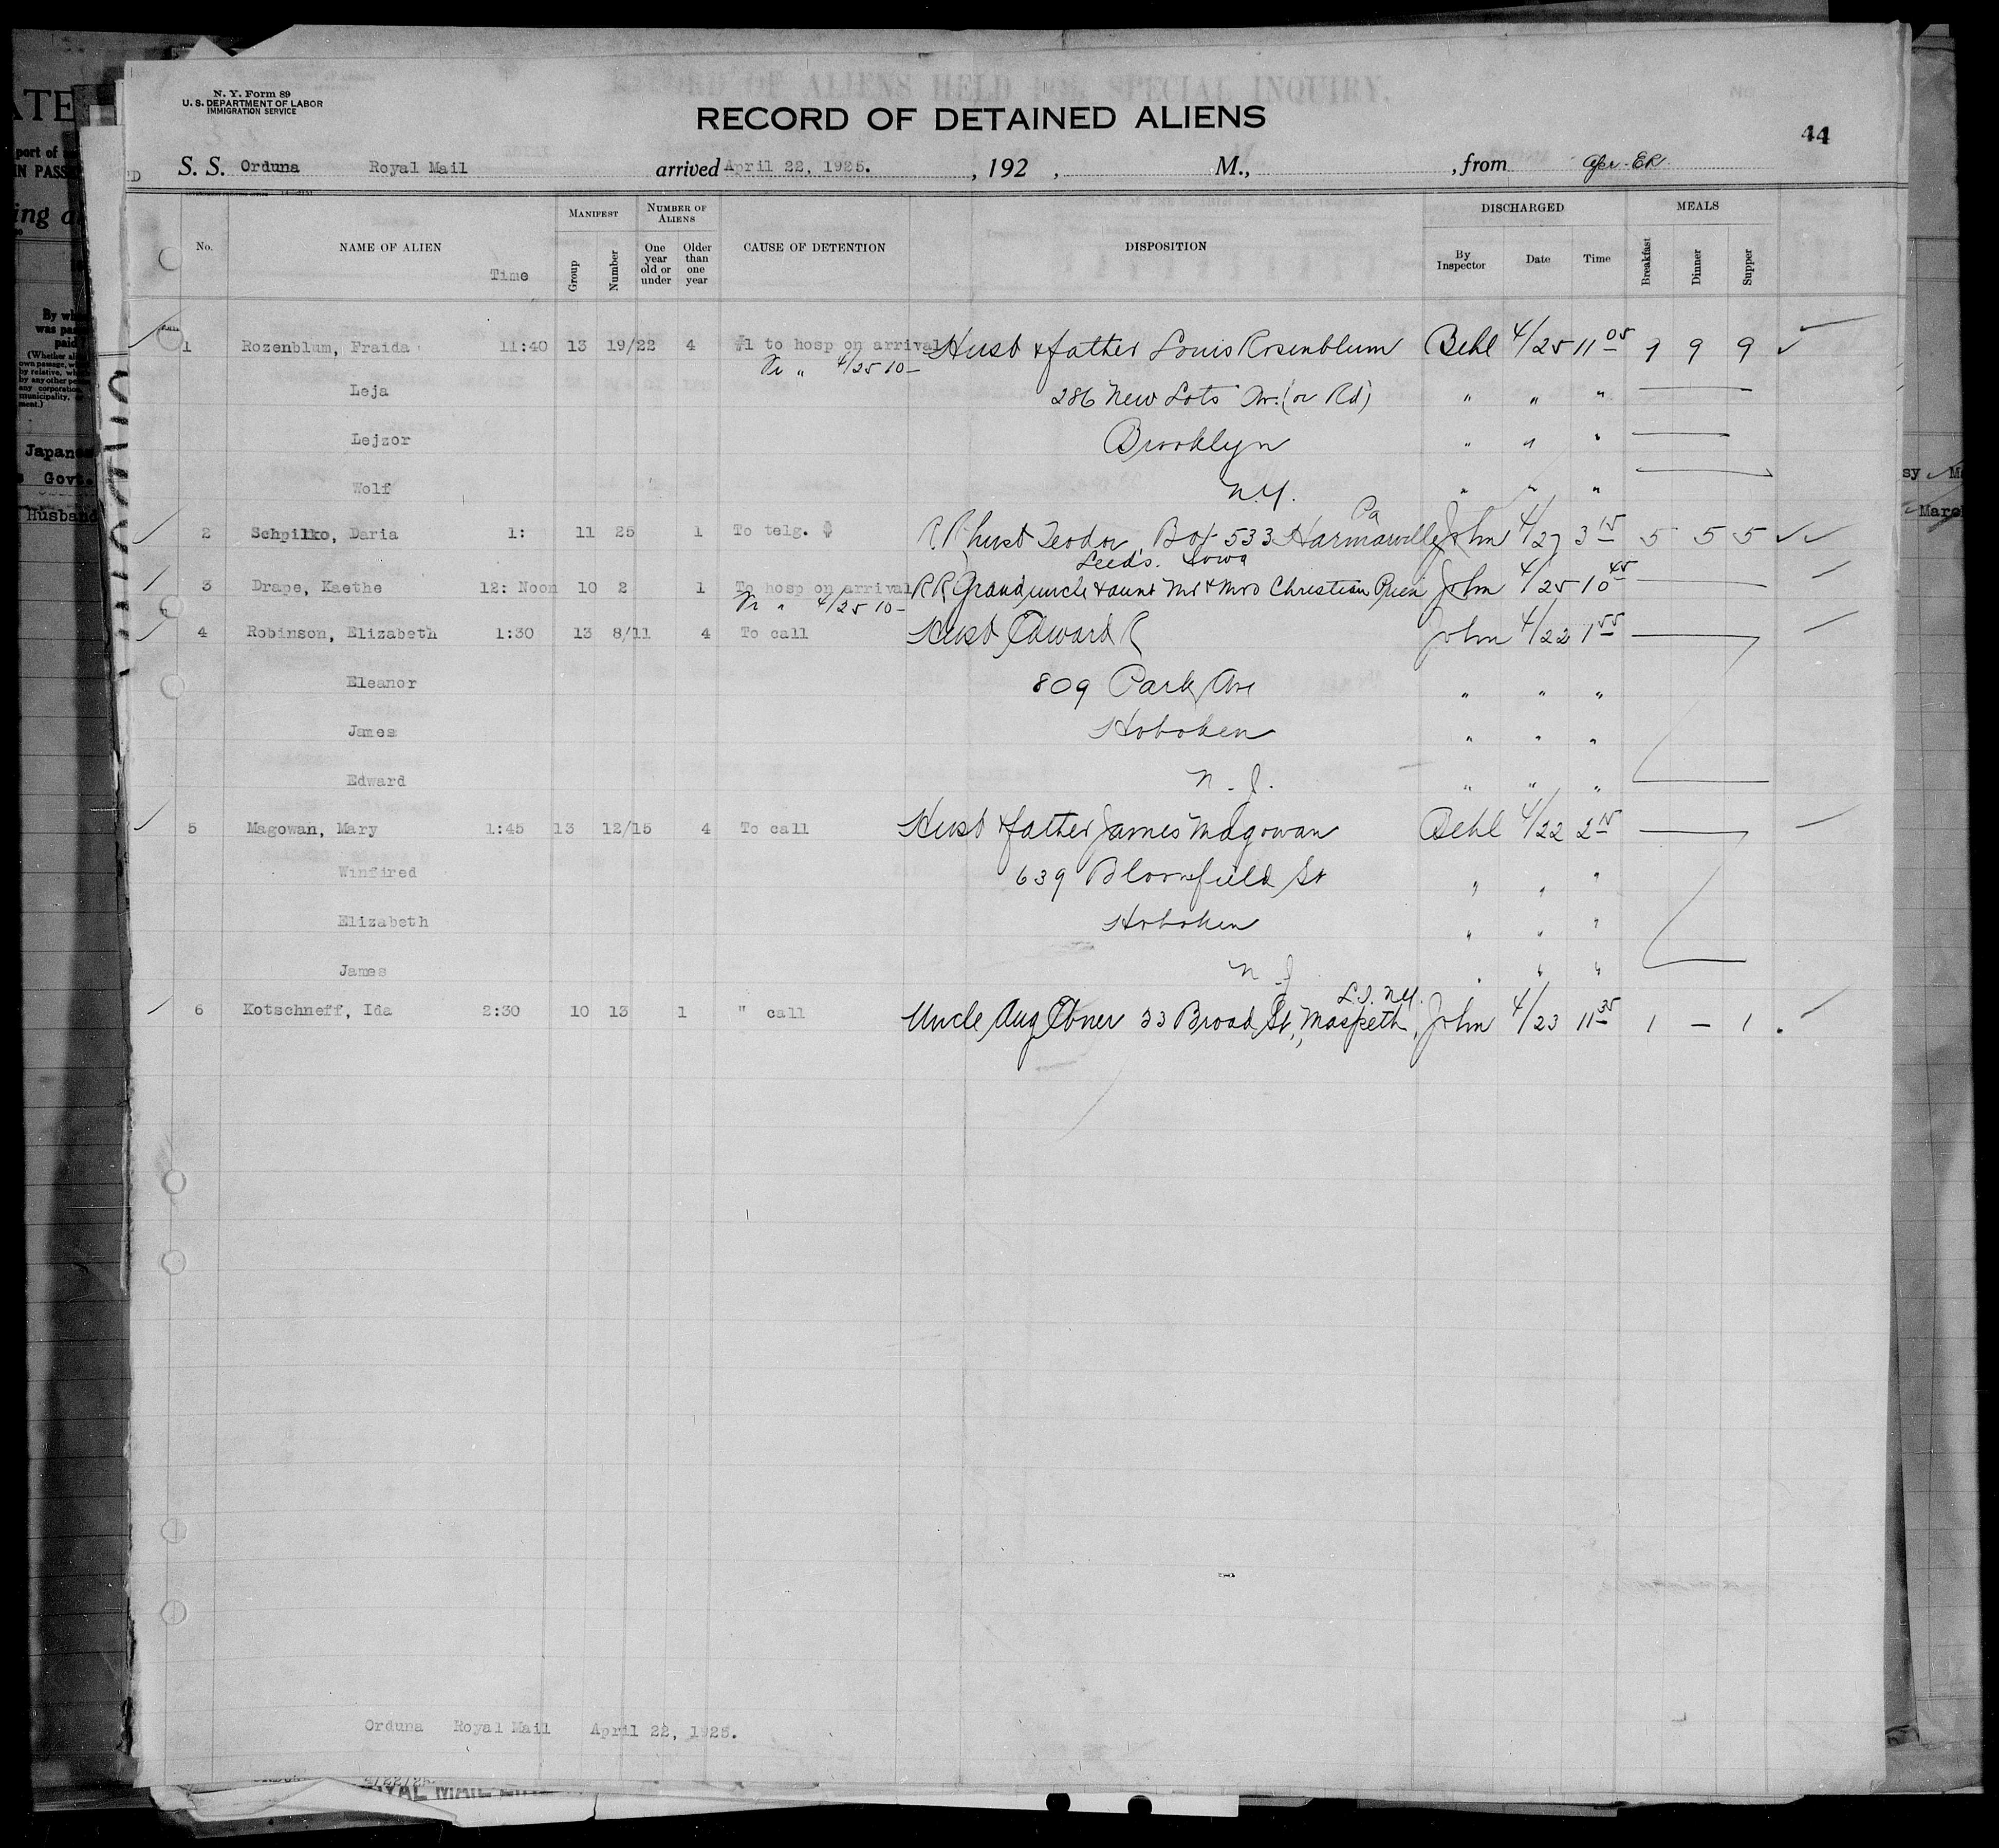 N. Y. Form 89
U. S. DEPARTMENT OF LABOR
IMMIGRATION SERVICE
RECORD OF ALIENS HELD FOR SPECIAL INQUIRY.
RECORD OF DETAINED ALIENS
44
S. S. Orduna Royal Mail arrived April 22, 1925. , 192 , M., , from
No. NAME OF ALIEN Time MANIFEST Group Number NUMBER OF ALIENS One year old or under Older than one year CAUSE OF DETENTION DISPOSITION DISCHARGED By Inspector Date Time MEALS Breakfast Dinner Supper
1 Rozenblum, Fraida 11:40 13 19/22 4 #1 to hosp on arrival Husb & father Louis Rosenblum Behl 4/25 11 05 9 9 9
" 4/25 10-
Leja 286 New Lots Av. (or Rd) " " "
Lejzor Brooklyn " " "
Wolf N.Y. " " "
2 Schpilko, Daria 1: 11 25 1 To telg. RR husb Teodor, Box 533 Harmarville Pa John 4/27 3 15 5 5 5
Leeds. Iowa
3 Drape, Kaethe 12: Noon 10 2 1 To hosp on arrival RR Granduncle & aunt Mr & Mrs Christian John 4/25 10 45
" 4/25 10-
4 Robinson, Elizabeth 1:30 13 8/11 4 To call Husb Edward R John 4/22 1 55
Eleanor 809 Park Ave " " "
James Hoboken " " "
Edward N. J. " " "
5 Magowan, Mary 1:45 13 12/15 4 To call Husb & father James Magowan Behl 4/22 2 15
Winfired 639 Bloomfield St " " "
Elizabeth Hoboken " " "
James N J " " "
6 Kotschneff, Ida 2:30 10 13 1 " call Uncle Aug Ebner 33 Broad St., Maspeth, L.I. N.Y. John 4/23 11 35 1 — 1
Orduna Royal Mail April 22, 1925.